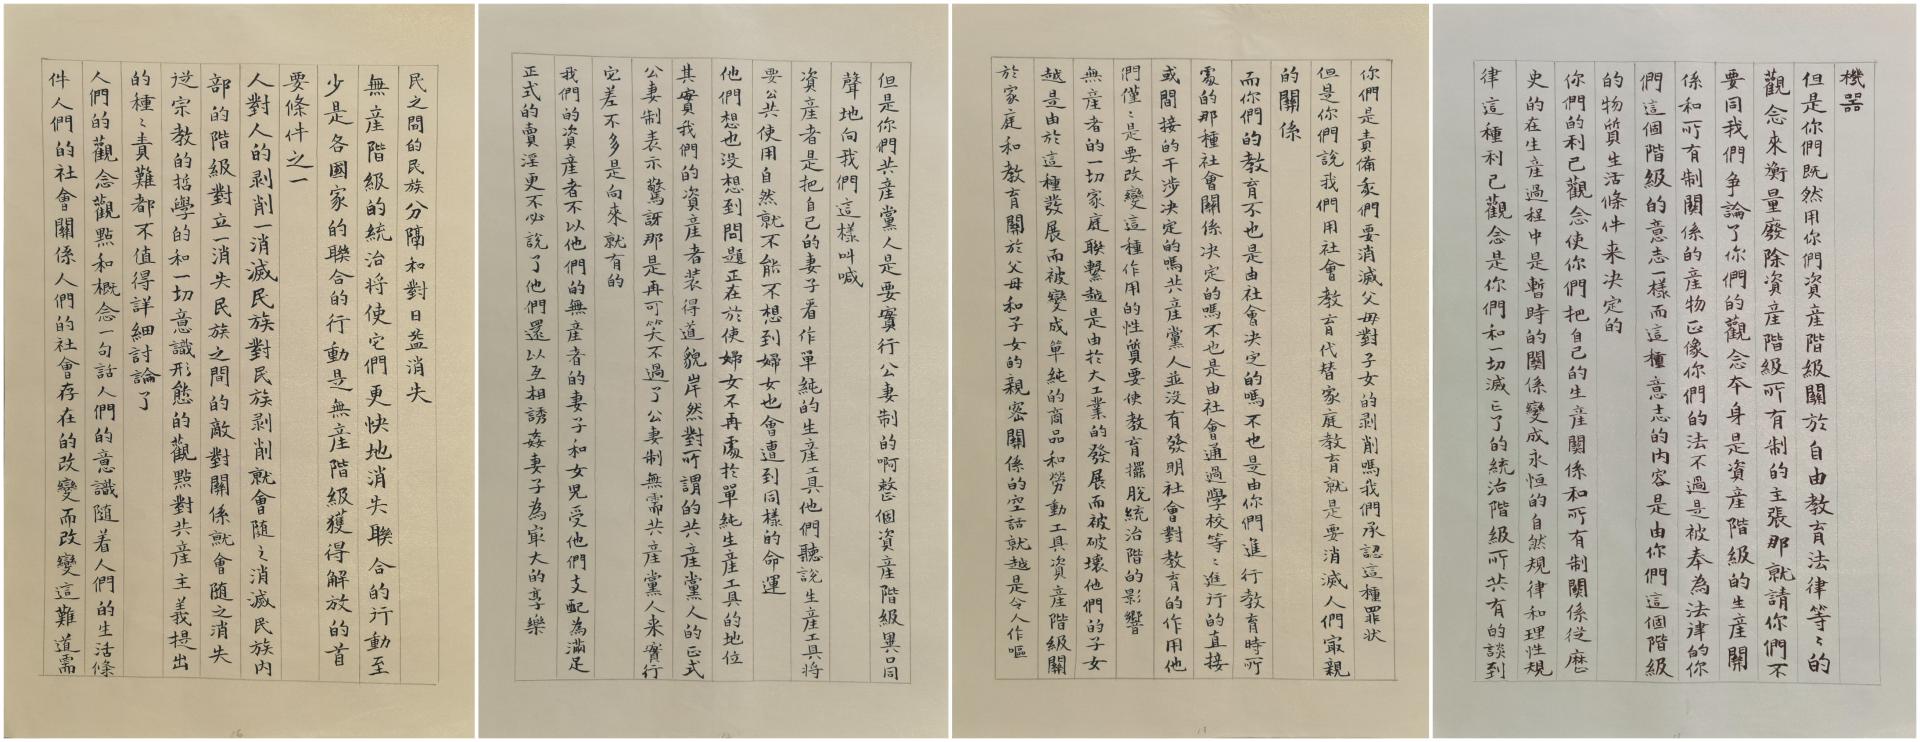 機器
但是你們既然用你們資產階級關於自由教育法律等〻的
觀念來衡量廢除資産階級所有制的主張那就請你們不
要同我們争論了你們的觀念本身是資産階級的生産關
係和所有制關係的產物正像你們的法不過是被奉為法律的你
們這個階級的意志一樣而這種意志的内容是由你們這個階級
的物質生活條件来決定的
你們的利己觀念使你們把自己的生産關係和所有制關係從歷
史的在生産過程中是暫時的關係變成永恒的自然規律和理性規
律這種利己觀念是你們和一切滅亡了的統治階級所共有的談到
你們是責備我們要消滅父母對子女的剥削嗎我們承認這種罪狀
但是你們說我們用社會教育代替家庭教育就是要消滅人們最親
的關係
而你們的教育不也是由社會決定的嗎不也是由你們進行教育時所
處的那種社會關係决定的嗎不也是由社會通過學校等〻進行的直接
或間接的干涉决定的嗎共産黨人並没有發明社會對教育的作用他
們僅〻是要改變這種作用的性質要使教育擺脫統治階的影響
無産者的一切家庭聯繫越是由於大工業的發展而被破壞他們的子女
越是由於這種發展而被變成單純的商品和勞動工具資産階級關
於家庭和教育關於父母和子女的親密關係的空話就越是令人作嘔
但是你們共産黨人是要實行公妻制的啊整個資産階級異口同
聲地向我們這樣叫喊
資産者是把自己的妻子看作單純的生産工具他們聽說生産工具將
要公共使用自然就不能不想到婦女也會遭到同樣的命運
他們想也没想到問題正在於使婦女不再處於單純生産工具的地位
其實我們的資産者装得道貌岸然對所謂的共産黨人的正式
公妻制表示驚訝那是再可笑不過了公妻制無需共産黨人来實行
它差不多是向來就有的
我們的資産者不以他們的無産者的妻子和女兒受他們支配為滿足
正式的賣淫更不必説了他們還以互相誘姦妻子為最大的享樂
民之間的民族分隔和對日益消失
無産階級的統治将使它們更快地消失聯合的行動至
少是各國家的聯合的行動是無産階級獲得解放的首
要條件之一
人對人的剥削一消滅民族對民族剥削就會隨之消滅民族内
部的階級對立一消失民族之間的敵對關係就會隨之消失
從宗教的哲學的和一切意識形態的觀點對共産主義提出
的種〻責難都不值得詳細討論了
人們的觀念觀點和概念一句話人們的意識随着人們的生活條
件人們的社會關係人們的社會存在的改變而改變這難道需